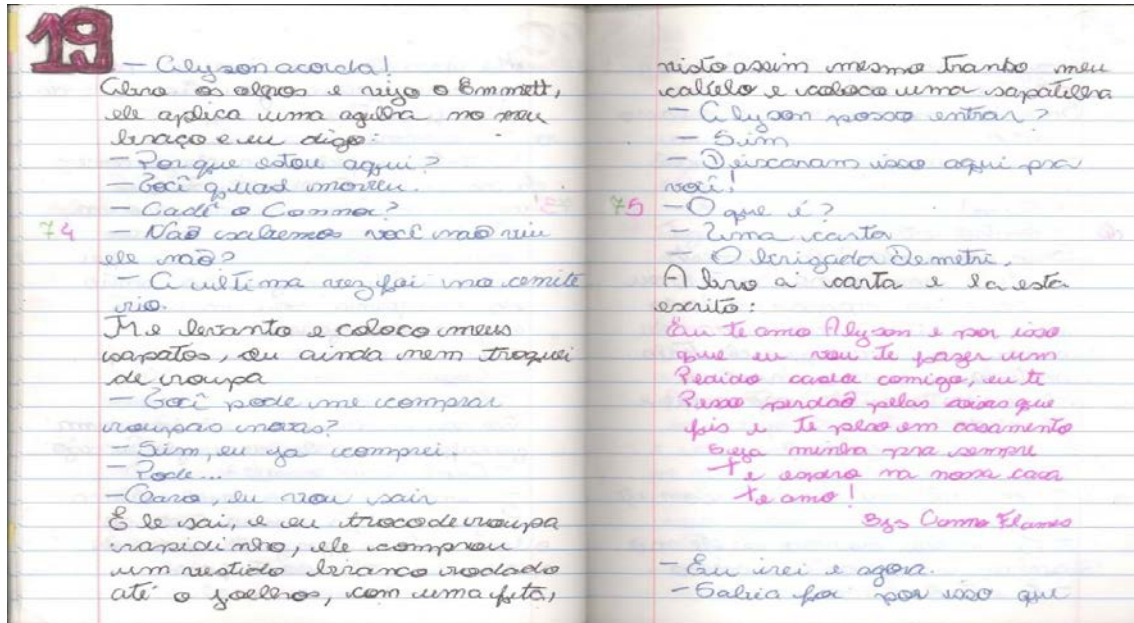 19
— Alyson acorda!
Abro os olhos e vejo o Emmett,
ele aplica uma agulha no meu
braço e eu digo:
— Por que estou aqui?
— Você quase morreu.
— Cadê o Connor?
74 — Não sabemos você não viu
ele não?
— A ultima vez foi no cemite
rio.
Me levanto e coloco meus
sapatos, eu ainda nem troquei
de roupa
— Você pode me comprar
roupas novas?
— Sim, eu ja comprei
— Pode...
— Claro, eu vou sair
Ele sai, e eu troco de roupa
rapidinho, ele comprou
um vestido branco rodado
até o joelhos, com uma fita,
visto assim mesmo transo meu
cabelo e coloco uma sapatilha
— Alyson posso entrar?
— Sim
— Deixaram isso aqui pra
você!
75 — O que é?
— Uma carta
— Obrigada Demetri.
Abro a carta e la esta
escrito:
Eu te amo Alyson e por isso
que eu vou te fazer um
Pedido casa comigo, eu te
Peço perdão pelas coisas que
fis e te peço em casamento
Seja minha pra sempre
te espero na nossa casa
te amo!
Bjs Connor Flames
— Eu irei e agora.
— Sabia foi por isso que